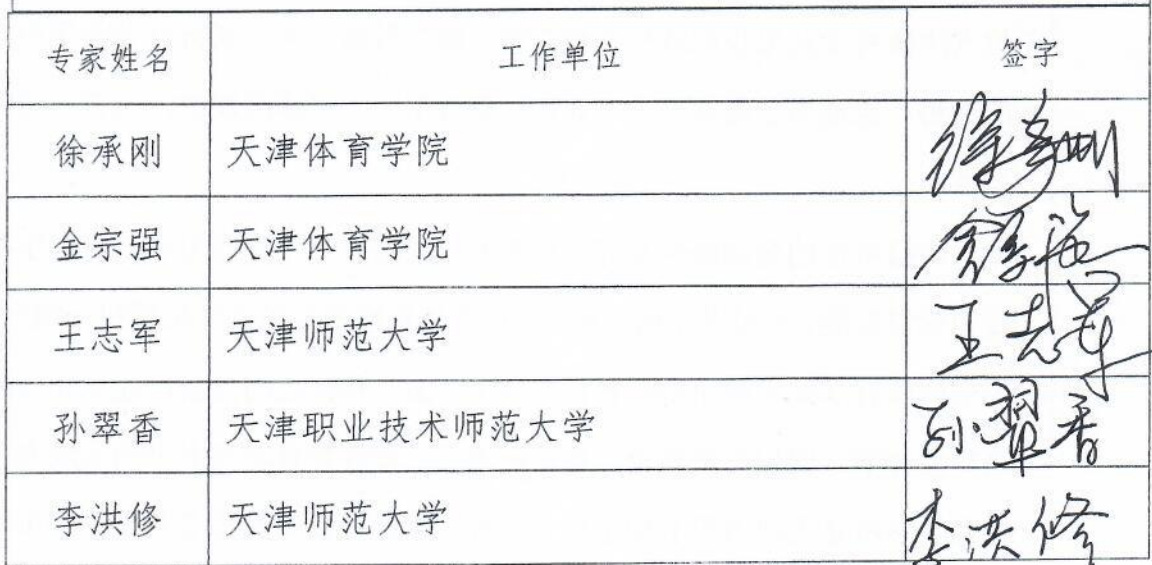 专家姓名 工作单位 签字
徐承刚 天津体育学院 徐承刚
金宗强 天津体育学院 金宗强
王志军 天津师范大学 王志军
孙翠香 天津职业技术师范大学 孙翠香
李洪修 天津师范大学 李洪修